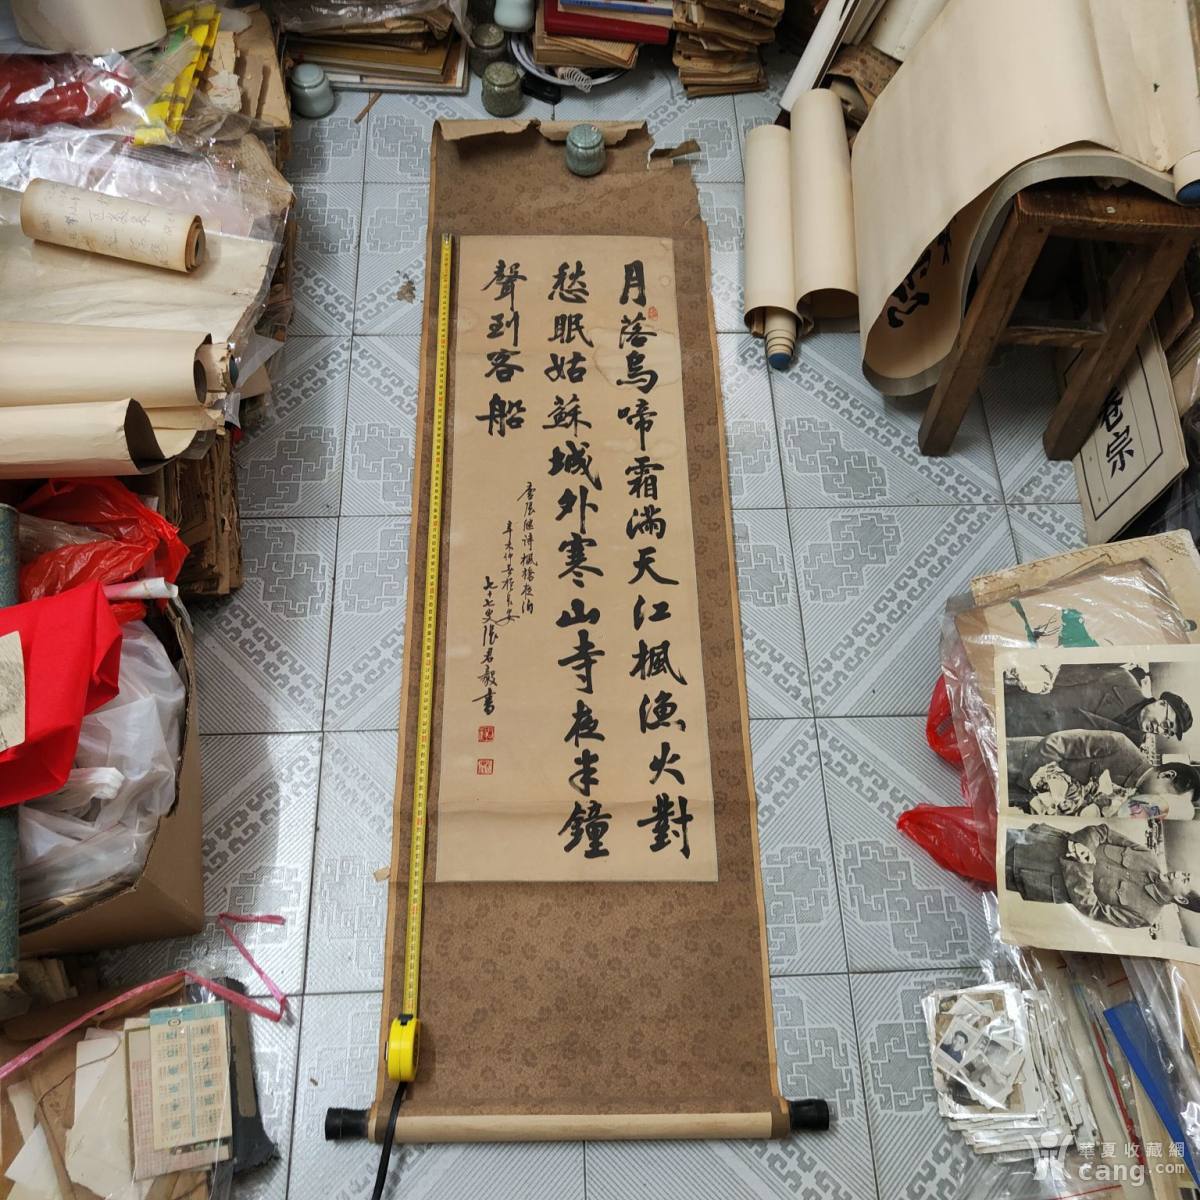 月落烏啼霜滿天江楓漁火對
愁眠姑蘇城外寒山寺夜半鐘
聲到客船
唐張継詩楓橋夜泊
辛未仲冬於長安
七七叟張君毅書
卷宗
華夏收藏網
cang.com